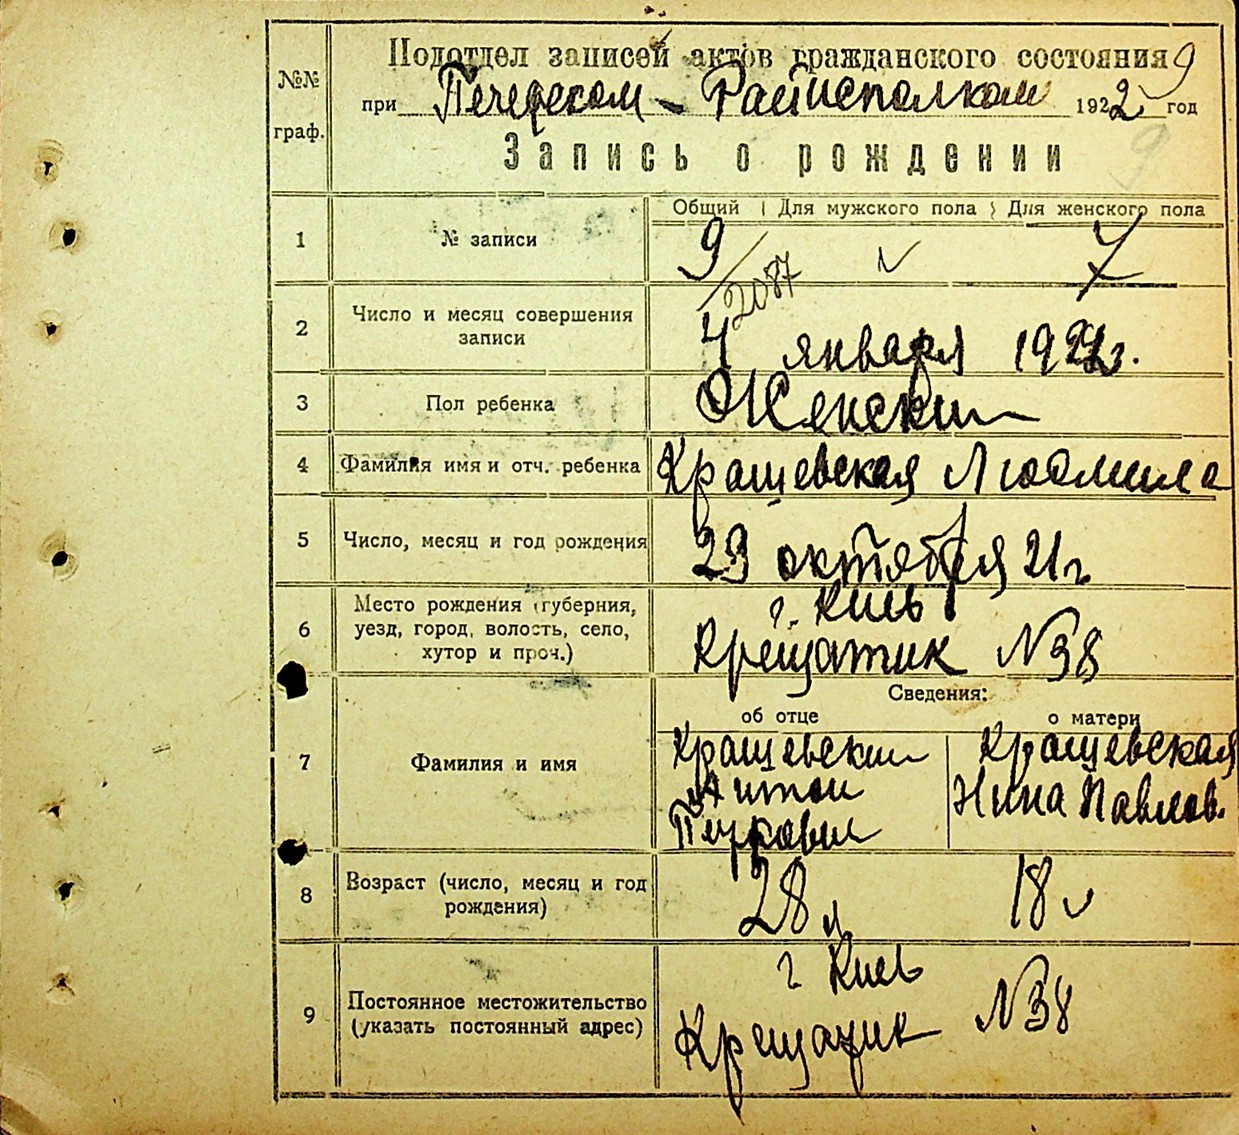 №№
граф.
Подотдел записей актов гражданского состояния 9
при Печерском - Райисполком 1922 год
9
Запись о рождении
Общий Для мужского пола Для женского пола
1 № записи 9 7
2087
2 Число и месяц совершения
записи
4 января 1922г.
3 Пол ребенка Женский
4 Фамилия имя и отч. ребенка Кращевская Людмила
5 Число, месяц и год рождения 23 октября 21г
6 Место рождения (губерния,
уезд, город, волость, село,
хутор и проч.)
г. Киев
Крещатик №38
Сведения:
об отце о матери
7 Фамилия и имя
Кращевский Кращевская
Антон Нина Павлов.
8 Возраст (число, месяц и год
рождения)
28 л 18 л
9 Постоянное местожительство
(указать постоянный адрес)
г Киев
Крещатик №38